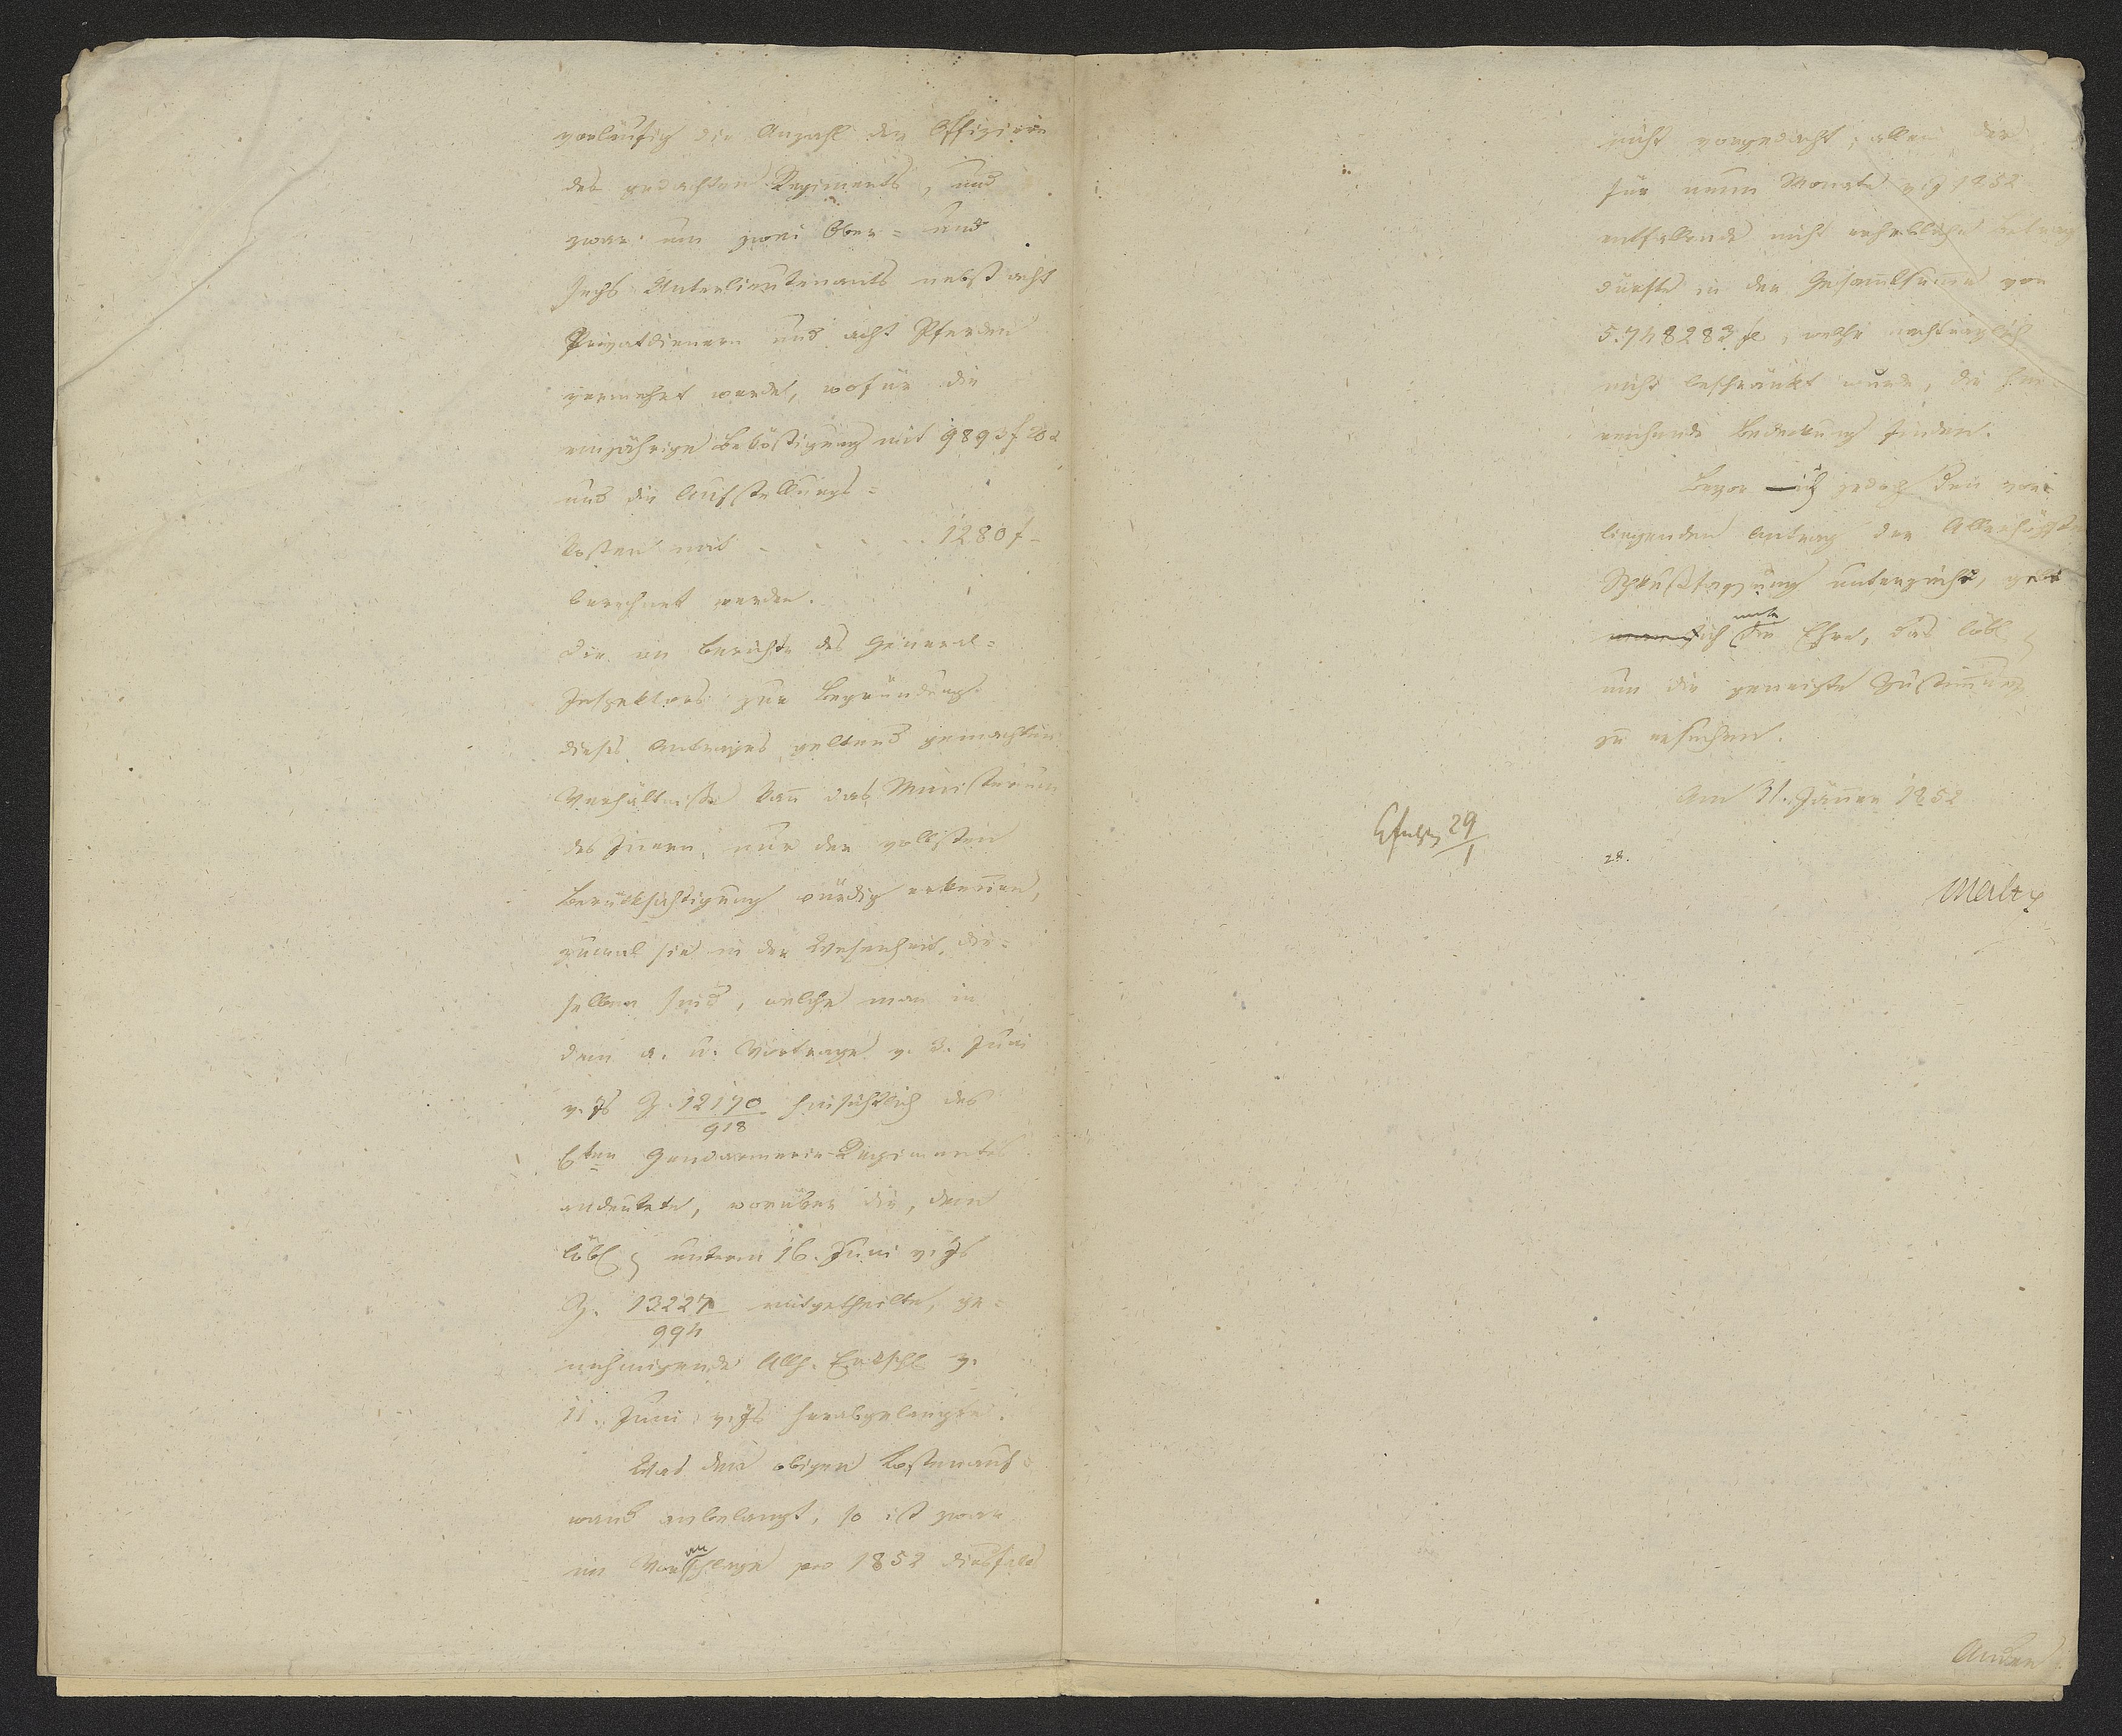 vorläufig die Anzahl der Offiziere
des gedachten Regiments, und
zwar um zwei Ober= und
sechs Unterlieutenants nebst acht
Privatdienern und acht Pferden
vermehrt werde, wofür die
einjährige Beköstigung mit 9893 f 20
und die Aufstellungs=
kosten mit . . . . . 1280 f -
berechnet werden.
Die im Berichte des General=
Inspektors zur Begründung
dieses Antrages geltend gemachten
Verhältnisse kan̅ das Ministerium
des In̅ern, nur der vollsten
Berücksichtigung würdig erken̅en,
zumal sie in der Wesenheit die=
selben sind, welche man in
dem a. u. Vortrage v. 3. Juni
v. Js Z. 12170/918 hinsichtlich des
6ten Gendarmerie-Regimentes
andeutete, worüber die, dem
löbl unterm 16. Juni v. Js
Z. 13227/994 mitgetheilte, ge=
nehmigende Allh. Entschl v.
11. Juni v. Js herabgelangte.
Was den obigen Kostenauf=
wand anbelangt, so ist zwar
im Voranschlage pro 1852 diesfalls
nicht vorgedacht; allein der
für neun Monate 1852
entfallende nicht erhebliche Betrag
dürfte in der Gesam̅tsum̅e von
5.748283 fl, welche nachträglich
nicht beschränkt wurde, die hin
reichende Bedeckung finden.
Bevor ich jedoch den vor
liegenden Antrag der Allerhöchsten
Schlußfassung unterziehe, gebe
ich mir die Ehre, das löbl
um die geneigte Zustim̅ung
zu ersuchen.
Am 31. Jän̅er 1852
29/1
28.